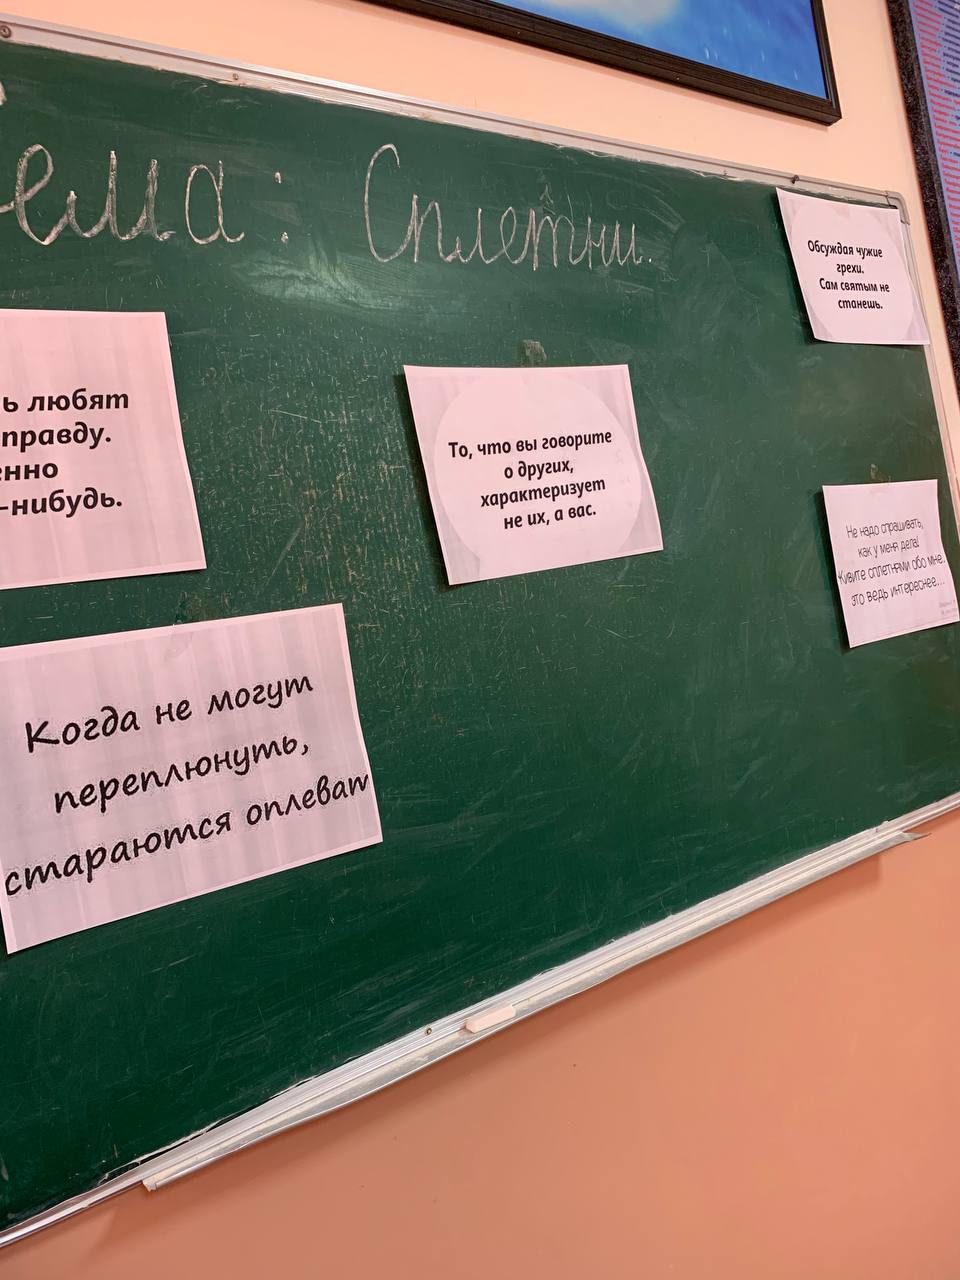 Тема: Сплетни.
Обсуждая чужие
грехи.
Сам святым не
станешь.
ь любят
правду.
енно
-нибудь.
То, что вы говорите
о других,
характеризует
не их, а вас.
Не надо спрашивать,
как у меня дела!
Живите сплетнями обо мне.
это ведь интереснее...
Когда не могут
переплюнуть,
стараются оплеват